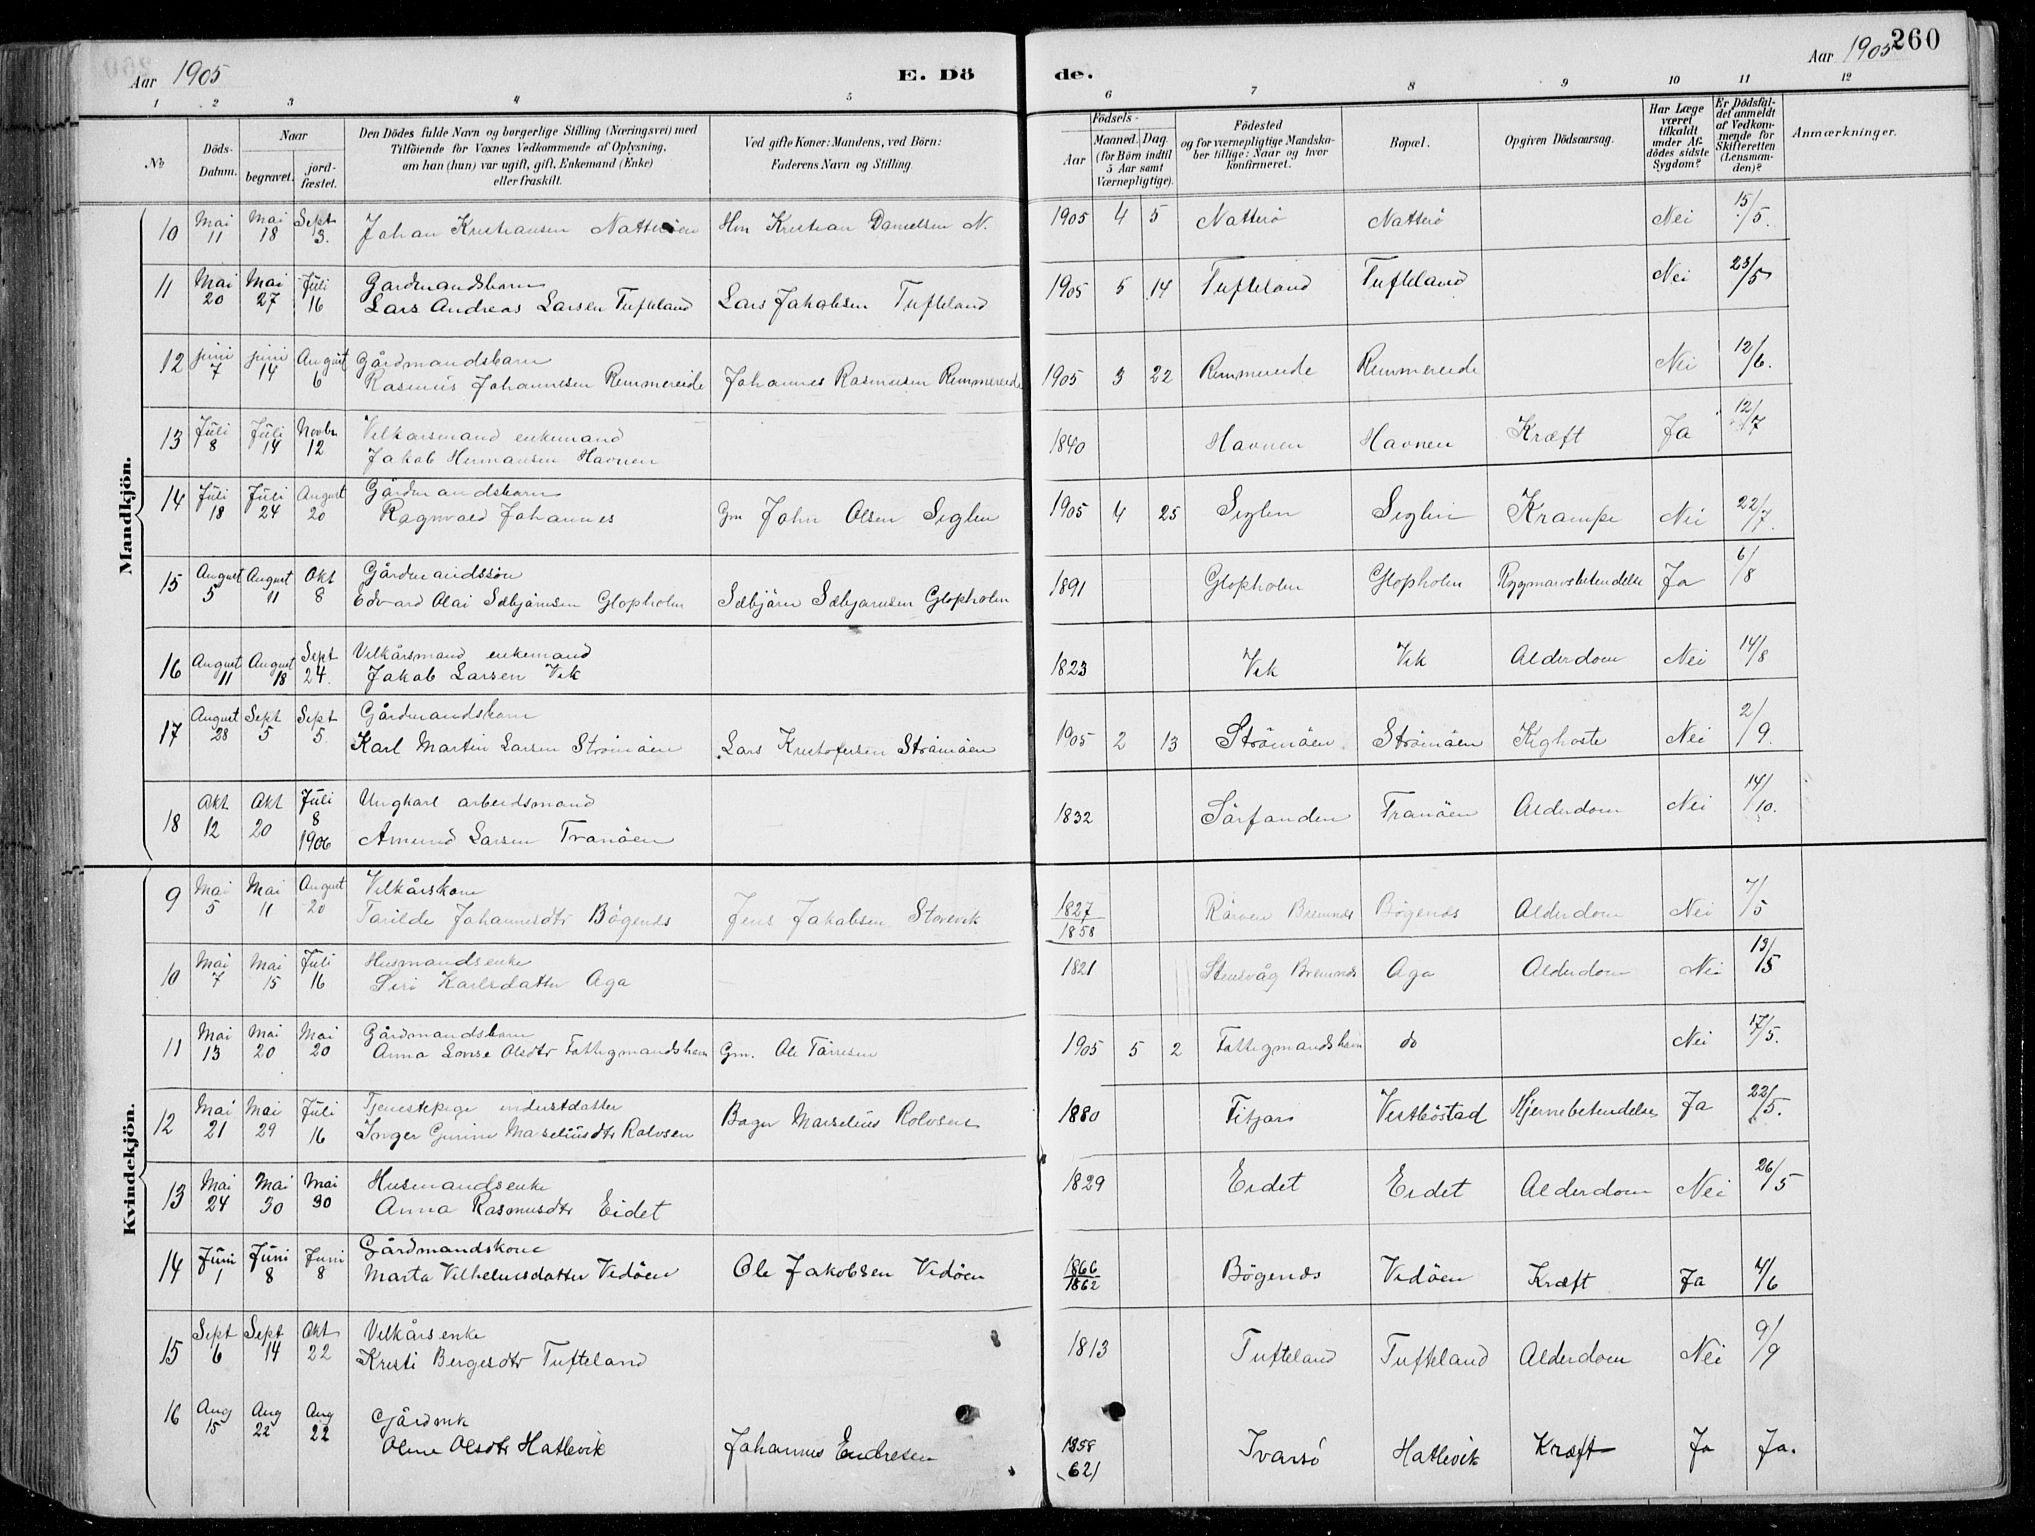 260
Aar 1905
E. Dö
de.
Aar 1905
1 2 3 4 5 6 7 8 9 10 11 12
No
Döds-Datum.
Naar
begravet.
jord-fæstet.
Den Dödes fulde Navn og borgerlige Stilling (Næringsvei) med
Tilföiende for Voxnes Vedkommende af Oplysning,
om han (hun) var ugift, gift, Enkemand (Enke)
eller fraskilt.
Ved gifte Koner: Mandens, ved Börn:
Faderens Navn og Stilling.
Födsels-
Aar
Maaned. Dag.
(for Börn indtil
5 Aar samt
Værnepligtige).
Födested
og for værnepligtige Mandska-
ber tillige: Naar og hvor
konfirmeret.
Bopæl.
Opgiven Dödsaarsag.
Har Læge
været
tilkaldt
under Af-
dödes sidste
Sygdom?
Er Dödsfal-
det anmeldt
af Vedkom-
mende for
Skifteretten
(Lensman-
den)?
Anmærkninger.
Mandkjön.
10 Mai 11 Mai 18 Sept 3. Johan Kristiansen Natterøen Hm Kristian Danielsen N. 1905 4 5 Natterö Natterö Nei 15/5.
11 Mai 20 Mai 27 Juli 16 Gardmandsbarn
Lars Andreas Larsen Tufteland Lars Jakobsen Tufteland 1905 5 14 Tufteland Tufteland Nei 23/5
12 juni 7 juni 14 August 6 Gårdmandsbarn
Rasmus Johannesen Remmereide Johannes Rasmusen Remmereide 1905 3 22 Remmereide Remmereide Nei 12/6.
13 Juli 8 Juli 14 Novbr 12 Vilkårsmand enkemand
Jakob Hermansen Havnen 1840 Havnen Havnen Kræft Ja 12/7
14 Juli 18 Juli 24 August 20 Gårdmandsbarn
Ragnvald Johannes Gm John Olsen Siglen 1905 4 25 Siglen Siglen Krampe Nei 22/7.
15 August 5 August 11 Okt 8 Gårdmandssön
Edvard Olai Sæbjörnsen Glopholm Sæbjörn Sæbjörnsen Glopholm 1891 Glopholm Glopholm Rygmarvsbetendelse Ja 6/8
16 August 11 August 18 Sept 24. Vilkårsmand enkemand
Jakob Larsen Vik 1823 Vik Vik Alderdom Nei 14/8
17 August 28 Sept 5 Sept 5. Gårdmandsbarn
Karl Martin Larsen Strömöen Lars Kristofersen Strömöen 1905 2 13 Strömöen Strömöen Kighoste Nei 2/9.
18 Okt. 12 Okt 20 Juli 8 1906 Ungkarl arbeidsmand
Amund Larsen Tranöen 1832 Sörfonden Tranöen Alderdom Nei 14/10.
Kvindekjön.
9 Mai 5 Mai 11 August 20 Vilkårskone
Torilde Johannesdtr Bögenes Jens Jakobsen Storevik 1827/1858 Röroen Bremnes Bögenes Alderdom Nei 7/5
10 Mai 7 Mai 15 Juli 16 Husmandsenke
Siri Karlsdatter Aga 1821 Stensvåg Bremnes Aga Alderdom Nei 13/5
11 Mai 13 Mai 20 Mai 20 Gårdmandsbarn
Anna Lovise Olsdtr Fattigmandshavn Gm. Ole Törresen 1905 5 2 Fattigmandshavn do Nei 17/5.
12 Mai 21 Mai 29 Juli 16 Tjenestepige inderstdatter
Inger Gurine Marseliusdtr Rolvsen Bager Marselius Rolvsen 1880 Fitjar Vestböstad Hjernebetendelse Ja 22/5.
13 Mai 24 Mai 30 Mai 30 Husmandsenke
Anna Rasmusdtr Eidet 1829 Eidet Eidet Alderdom Nei 26/5
14 Juni 1 Juni 8 Juni 8 Gårdmandskone
Marta Vilhelmsdatter Vidöen Ole Jakobsen Vidöen 1866/1862 Bögenes Vidöen Kræft Ja 4/6
15 Sept 6 Sept 14 Okt 22 Vilkårsenke
Kristi Bergesdtr Tufteland 1813 Tufteland Tufteland Alderdom Nei 9/9
16 Aug 15 Aug 22 Aug 22 Gårdmk
Oline Olsdtr Hatlevik Johannes Endresen 1858 (62) Ivarsö Hatlevik Kræft Ja Ja.